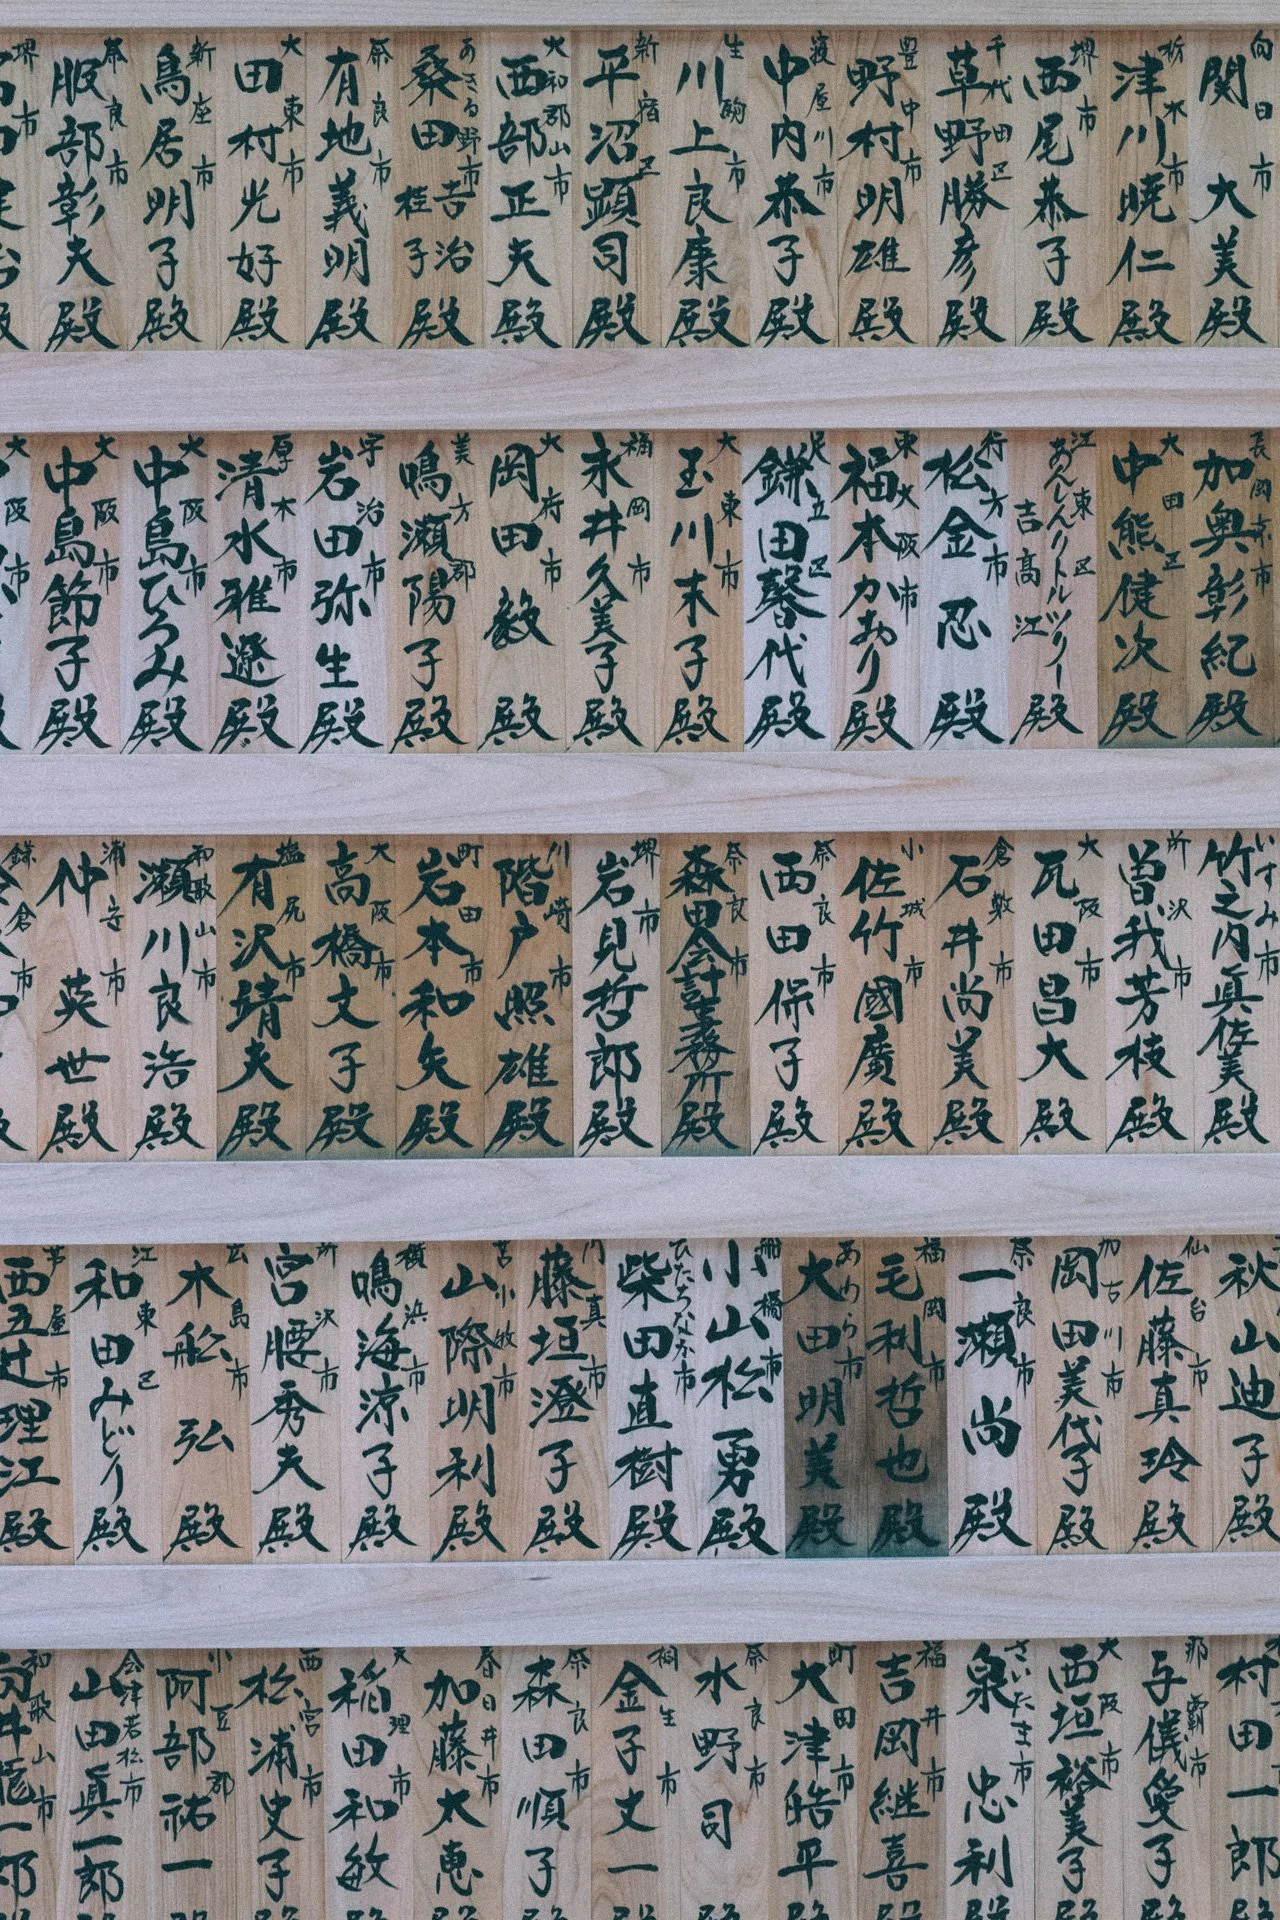 向日市 関 大美殿
栃木市 津川暁仁殿
堺市 西尾恭子殿
千代田区 草野勝彦殿
豊中市 野村明雄殿
寝屋川市 中内恭子殿
生駒市 川上良康殿
新宿区 平沼顕司殿
大和郡山市 西部正夫殿
あきる野市 桑田吉治 桂子殿
奈良市 有地義明殿
大東市 田村光好殿
新座市 鳥居明子殿
奈良市 服部彰夫殿
堺市
長岡京市 加奥彰紀殿
大田区 中熊健次殿
江東区 あんしんリトルツリー 吉高 江殿
行方市 松金 忍殿
東大阪市 福本かおり殿
足立区 鎌田馨代殿
大東市 玉川末子殿
福岡市 永井久美子殿
大府市 岡田 毅殿
美方郡 鳴瀬陽子殿
宇治市 岩田弥生殿
厚木市 清水雅遼殿
大阪市 中島ひろみ殿
大阪市 中島節子殿
大阪市
いすみ市 竹之内真佐美殿
所沢市 曽我芳枝殿
大阪市 瓦田昌大殿
倉敷市 石井尚美殿
小城市 佐竹國廣殿
奈良市 西田保子殿
奈良市 森田会計事務所殿
堺市 岩見哲郎殿
川崎市 階戸照雄殿
町田市 岩本和矢殿
大阪市 高橋文子殿
塩尻市 有沢靖夫殿
和歌山市 瀬川良浩殿
浦安市 仲 英世殿
鎌倉市
秋山迪子殿
仙台市 佐藤真玲殿
加古川市 岡田美代子殿
奈良市 一瀬 尚殿
福岡市 毛利哲也殿
あわら市 大田明美殿
船橋市 小山松 勇殿
ひたちなか市 柴田直樹殿
門真市 藤垣澄子殿
苫小牧市 山際明利殿
横浜市 鳴海涼子殿
所沢市 宮腰秀夫殿
広島市 木船 弘殿
江東区 和田みどり殿
芦屋市 西五辻理江殿
村田一郎
那覇市 与儀愛子殿
大阪市 西垣裕美子殿
さいたま市 泉 忠利殿
福井市 吉岡継喜殿
町田市 大津皓平殿
奈良市 水野 司殿
桐生市 金子丈一殿
奈良市 森田順子殿
春日井市 加藤大恵殿
天理市 稲田和敏殿
西宮市 松浦史子殿
小豆郡 阿部祐一殿
会津若松市 山田真一郎殿
和歌山市